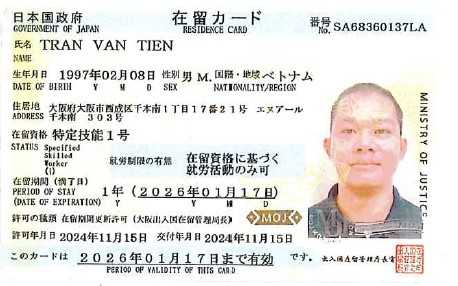 日本国政府 在留カード 番号 SA68360137LA
GOVERNMENT OF JAPAN RESIDENCE CARD No.
氏名 TRAN VAN TIEN
NAME
生年月日 1997年02月08日 性別 男 M. 国籍・地域 ベトナム
DATE OF BIRTH Y M D SEX NATIONALITY/REGION
住居地 大阪府大阪市西成区千本南1丁目17番21号 エヌアール
ADDRESS 千本南 303号
在留資格 特定技能1号
STATUS Specified
Skilled
Worker
(i)
就労制限の有無 在留資格に基づく
就労活動のみ可
在留期間(満了日) 1年(2026年01月17日)
PERIOD OF STAY
(DATE OF EXPIRATION) Y M D
MOJ
許可の種類 在留期間更新許可(大阪出入国在留管理局長)
許可年月日 2024年11月15日 交付年月日 2024年11月15日
このカードは 2026年01月17日まで有効 です。
PERIOD OF VALIDITY OF THIS CARD
MINISTRY OF JUSTICE
出入国在留管理庁長官